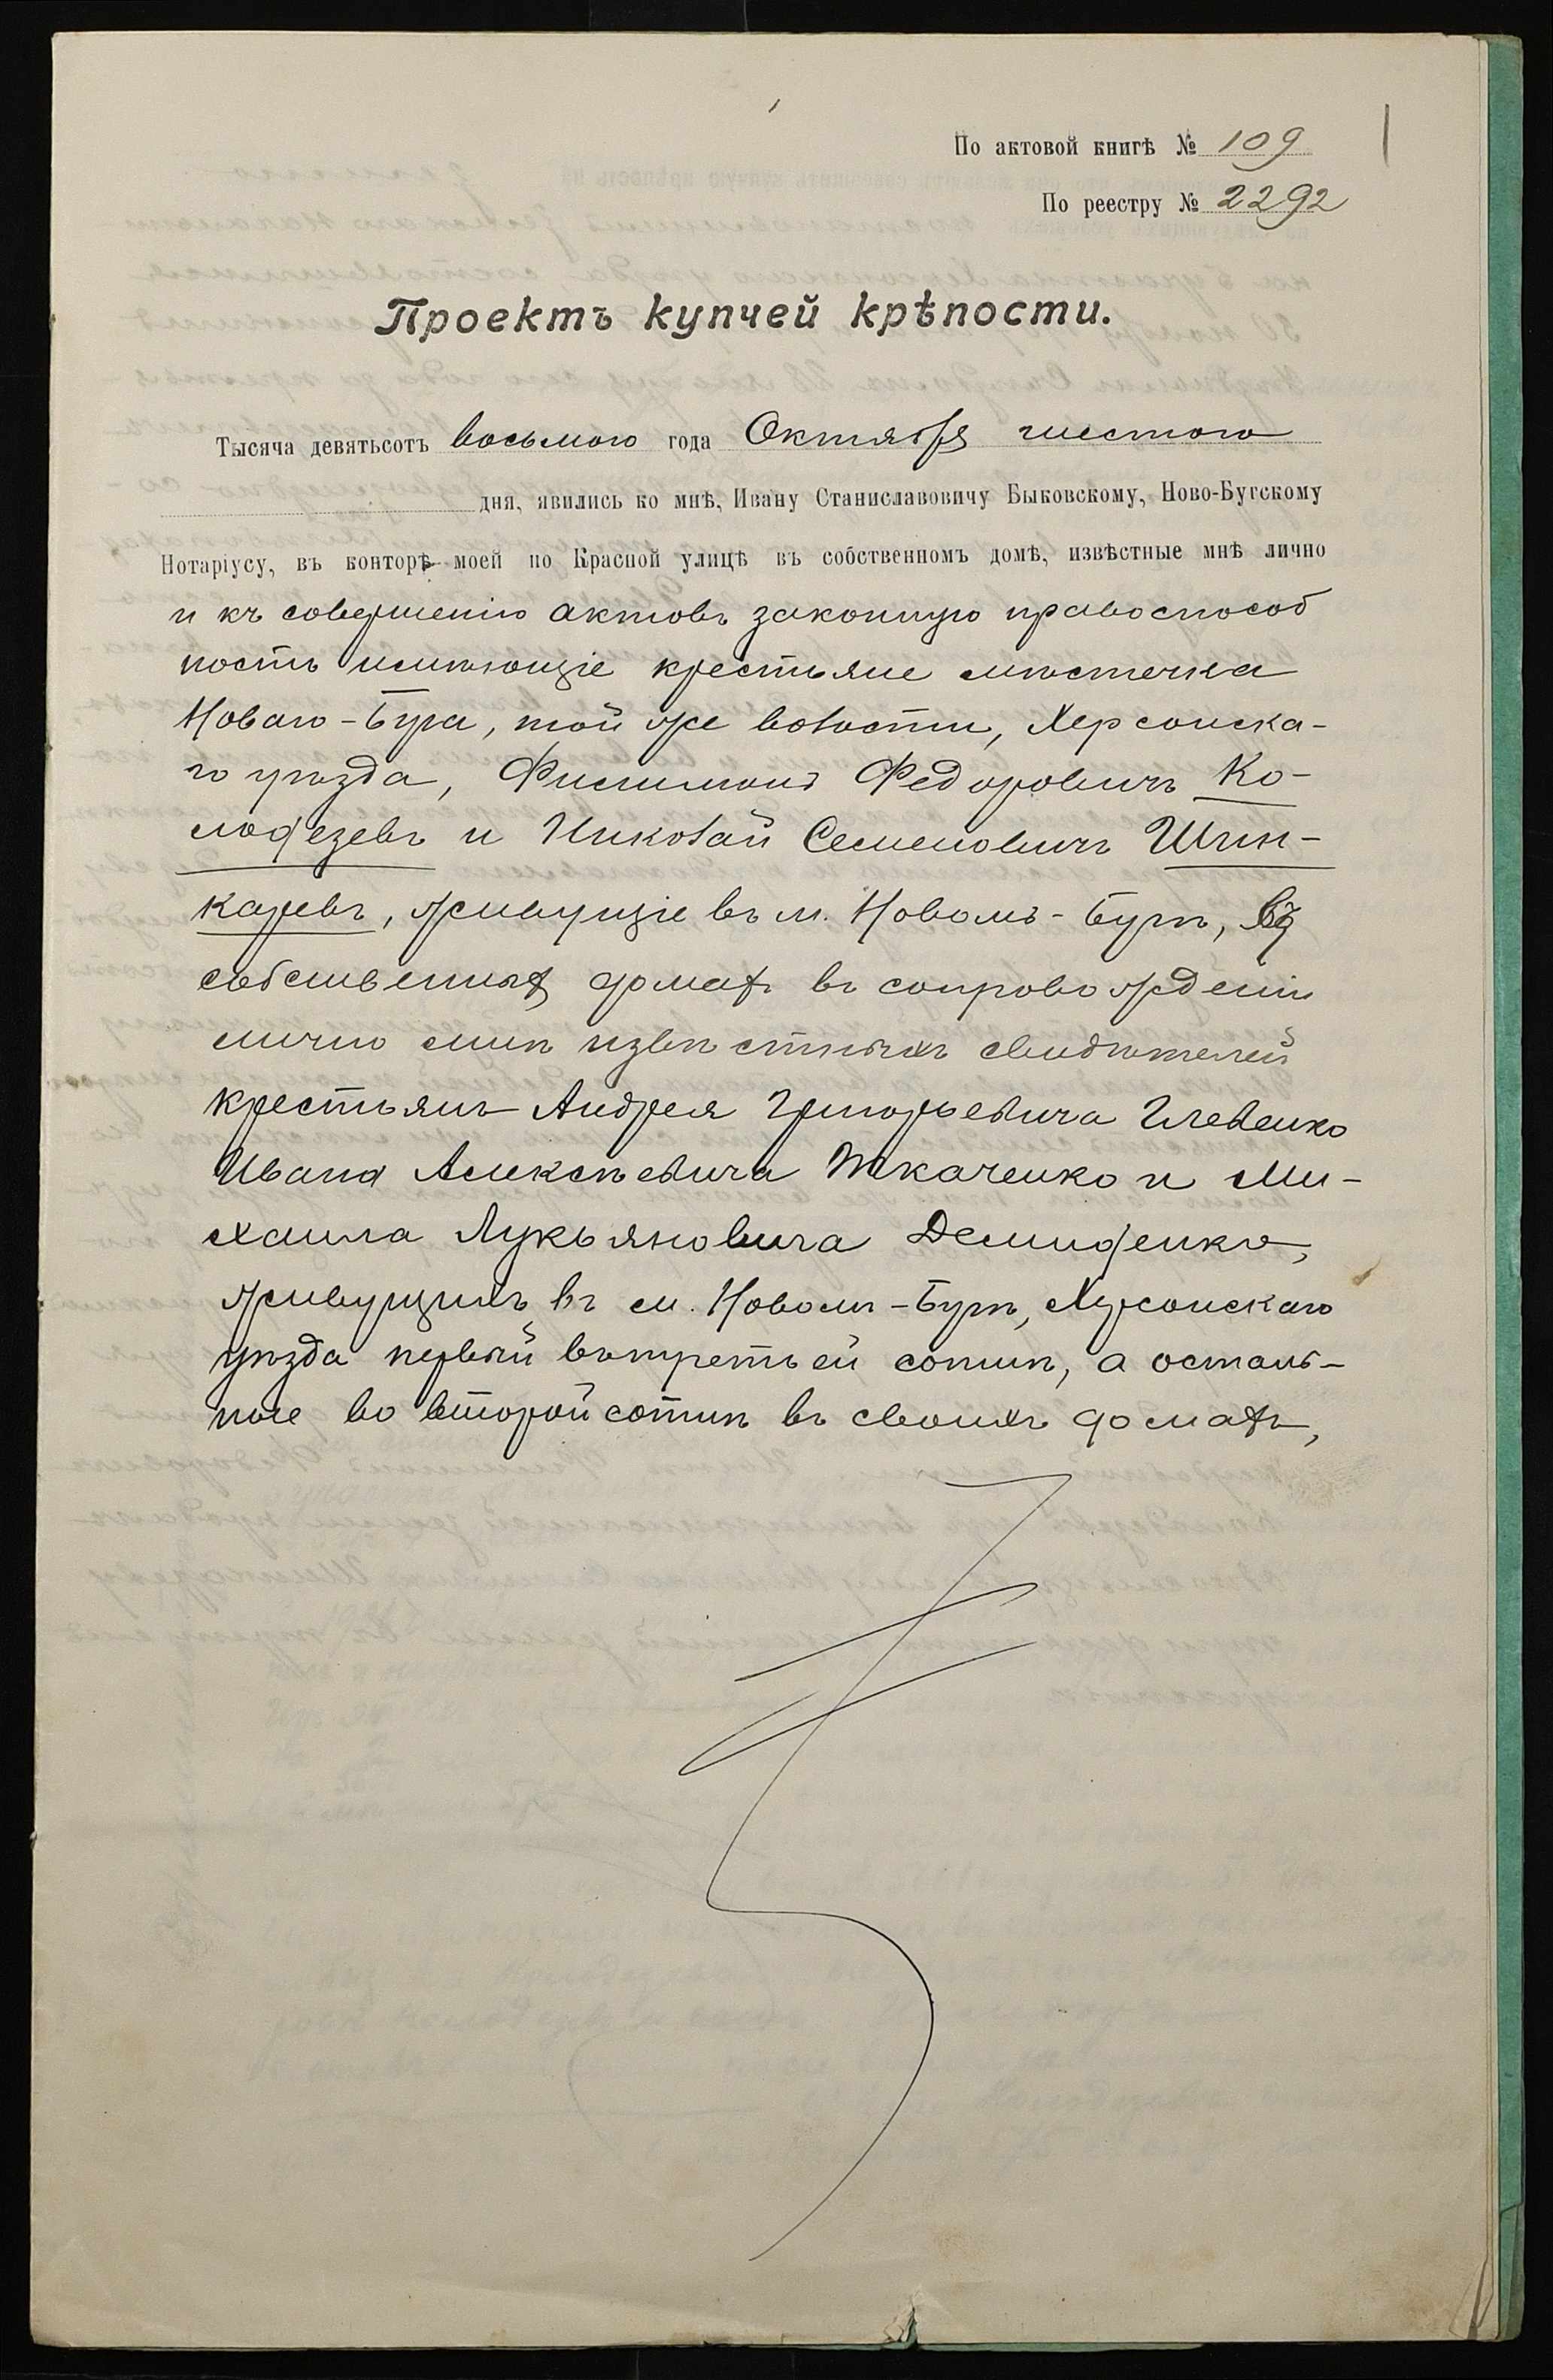 1
По актовой книгѣ № 109
По реестру № 2292
Проектъ купчей крѣпости.
Тысяча девятьсотъ восьмого года Октября шестого
дня, явились ко мнѣ, Ивану Станиславовичу Быковскому, Ново-Бугскому
Нотаріусу, въ конторѣ моей по Красной улицѣ въ собственномъ домѣ, извѣстные мнѣ лично
и къ совершенію актовъ законную правоспособ
ность имѣющіе крестьяне мѣстечка
Новаго-Буга, той же волости, Херсонска-
го уѣзда, Филимонъ Федоровичъ Ко-
лодезевъ и Николай Семеновичъ Шин-
каревъ, живущіе въ м. Новомъ-Бугѣ, въ
собственныхъ домахъ въ сопровожденіи
лично мнѣ извѣстныхъ свидѣтелей
крестьянъ Андрея Григорьевича Глевенко
Ивана Алексѣевича Ткаченко и Ми-
хаила Лукьяновича Демиденко,
живущихъ въ м. Новомъ-Бугѣ, Херсонскаго
уѣзда первый въ третьей сотнѣ, а осталь-
ные во второй сотнѣ въ своихъ домахъ,